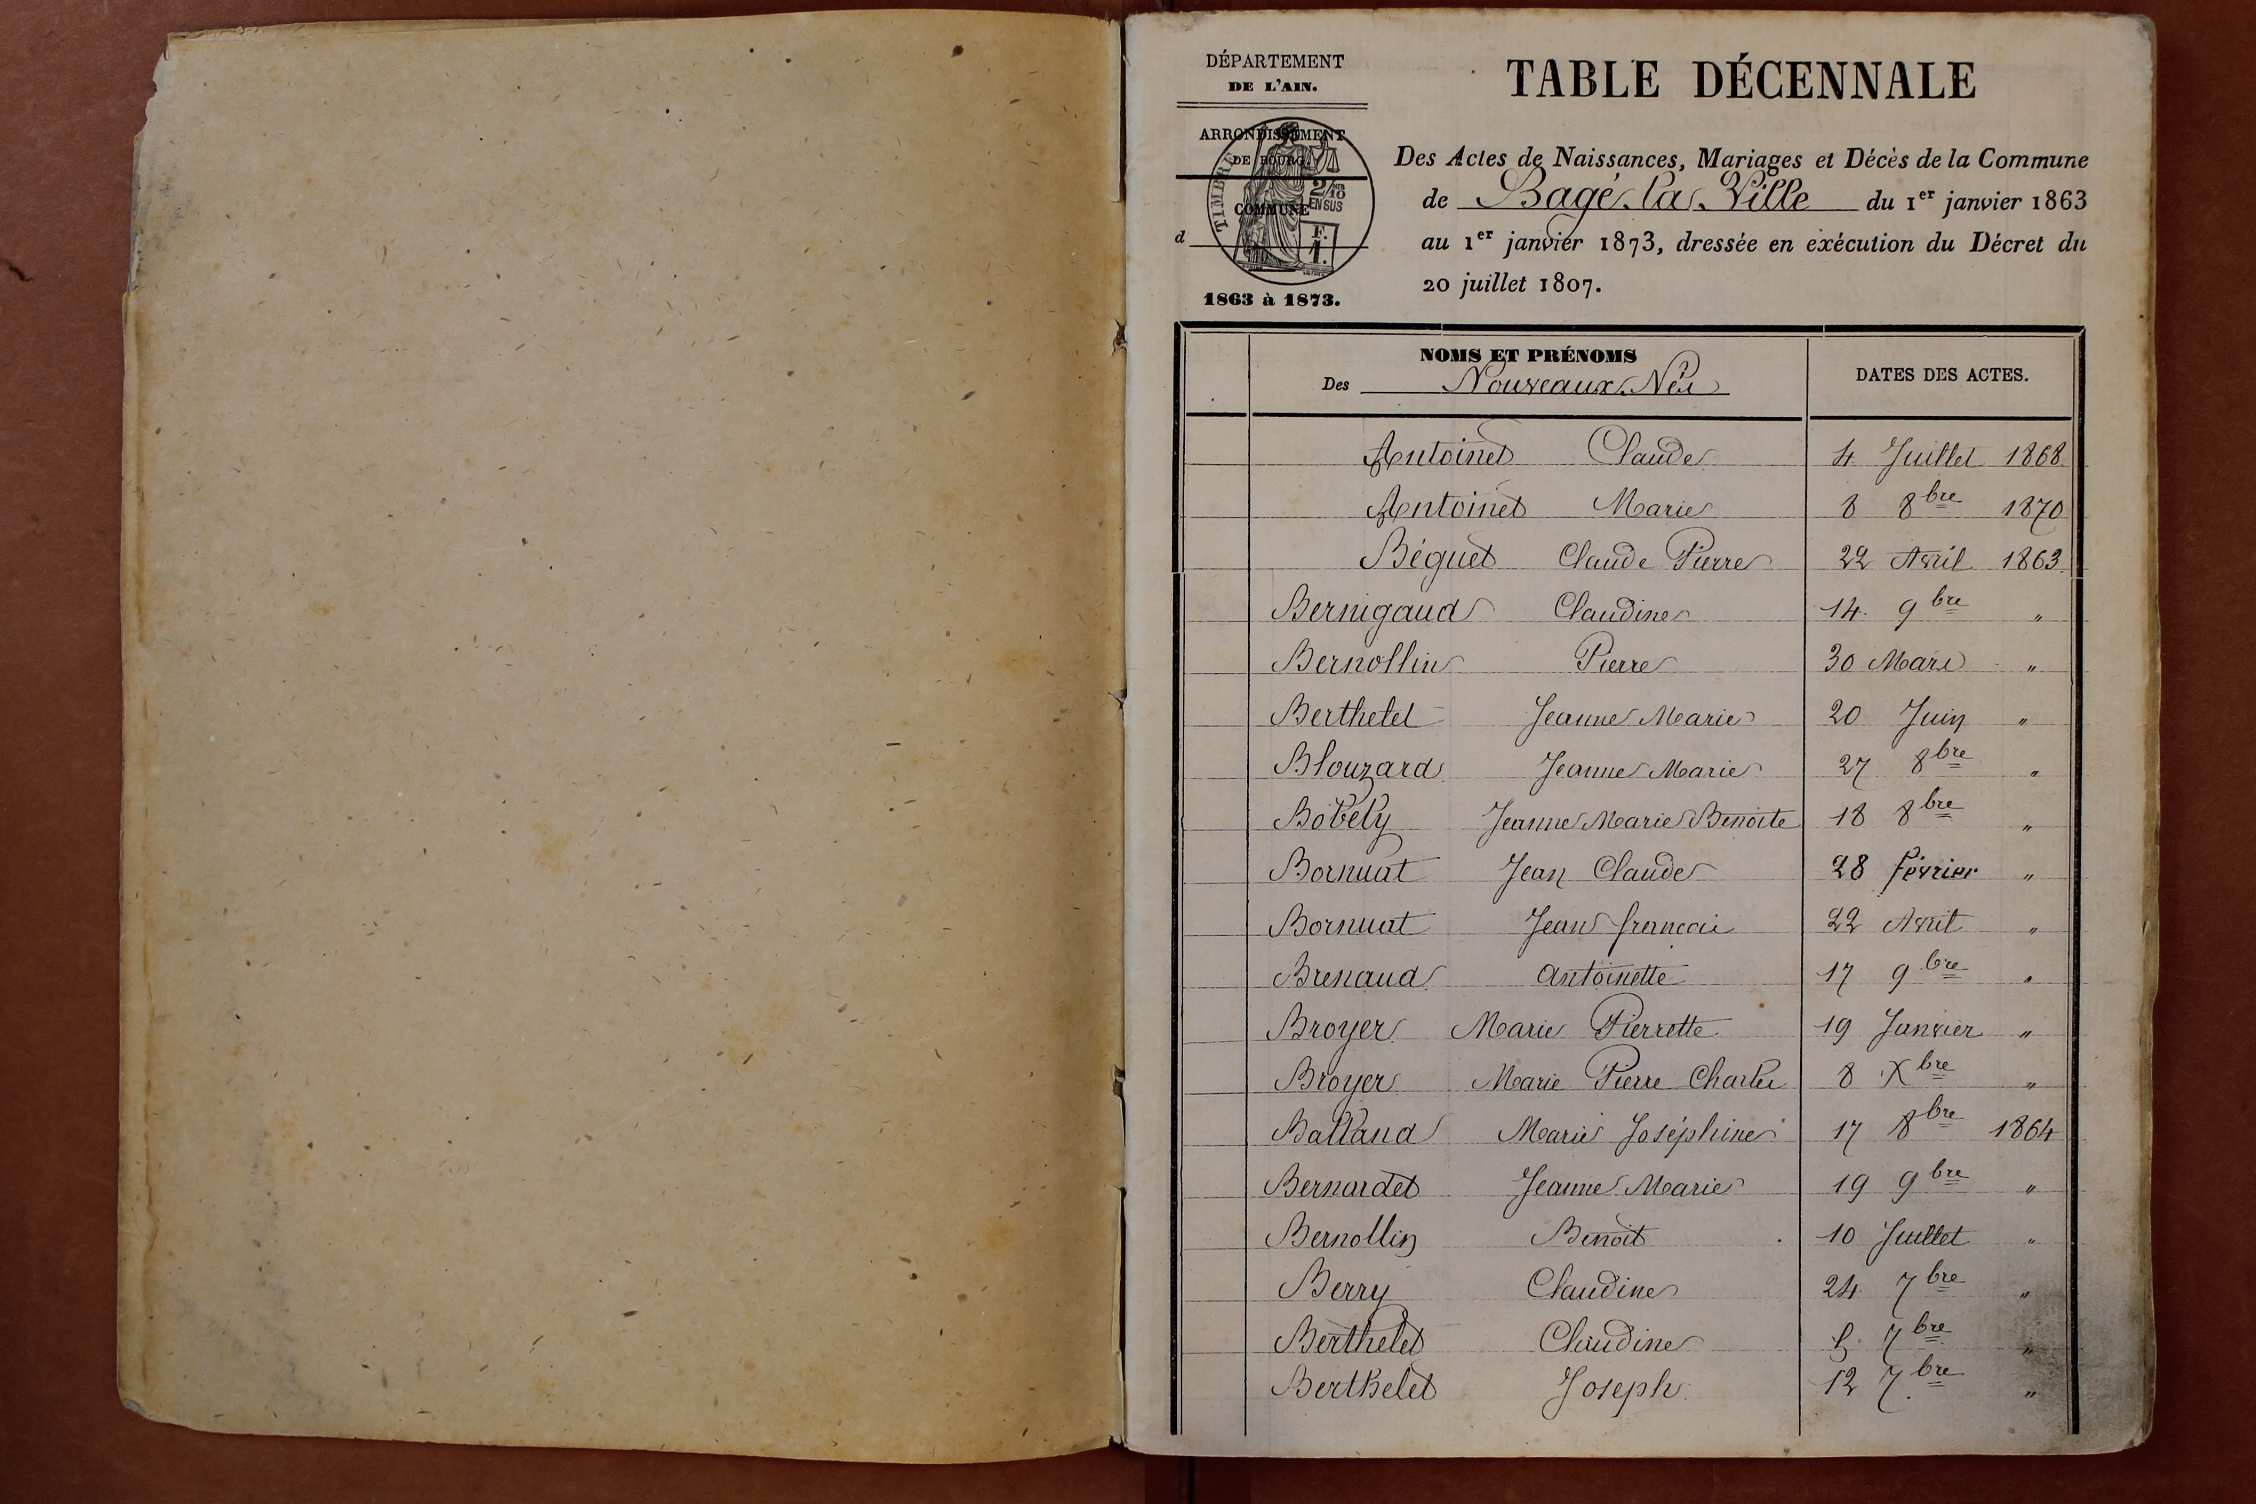 DÉPARTEMENT
DE L'AIN.
ARRONDISSEMENT
DE BOURG.
COMMUNE
d
1863 à 1873.
TIMBRE
2/10
EN SUS
F.
1.
TABLE DÉCENNALE
Des Actes de Naissances, Mariages et Décès de la Commune
de Bagé-la-Ville du 1er janvier 1863
au 1er janvier 1873, dressée en exécution du Décret du
20 juillet 1807.
NOMS ET PRÉNOMS
Des Nouveaux-Nés
DATES DES ACTES.
Antoinet Claude 4 Juillet 1868
Antoinet Marie 8 8bre 1870
Béguet Claude Pierre 22 Avril 1863
Bernigaud Claudine 14 9bre "
Bernollin Pierre 30 Mars "
Berthelet Jeanne Marie 20 Juin "
Blouzard Jeanne Marie 27 8bre "
Bobély Jeanne Marie Benoite 18 8bre "
Bornuat Jean Claude 28 février "
Bornuat Jean françois 22 Avril "
Brenaud Antoinette 17 9bre "
Broyer Marie Pierrette 19 Janvier "
Broyer Marie Pierre Charles 8 Xbre "
Balland Marie Joséphine 17 8bre 1864
Bernardet Jeanne Marie 19 9bre "
Bernollin Benoit 10 Juillet "
Berry Claudine 24 7bre "
Berthelet Claudine 7bre "
Berthelet Joseph 12 7bre "